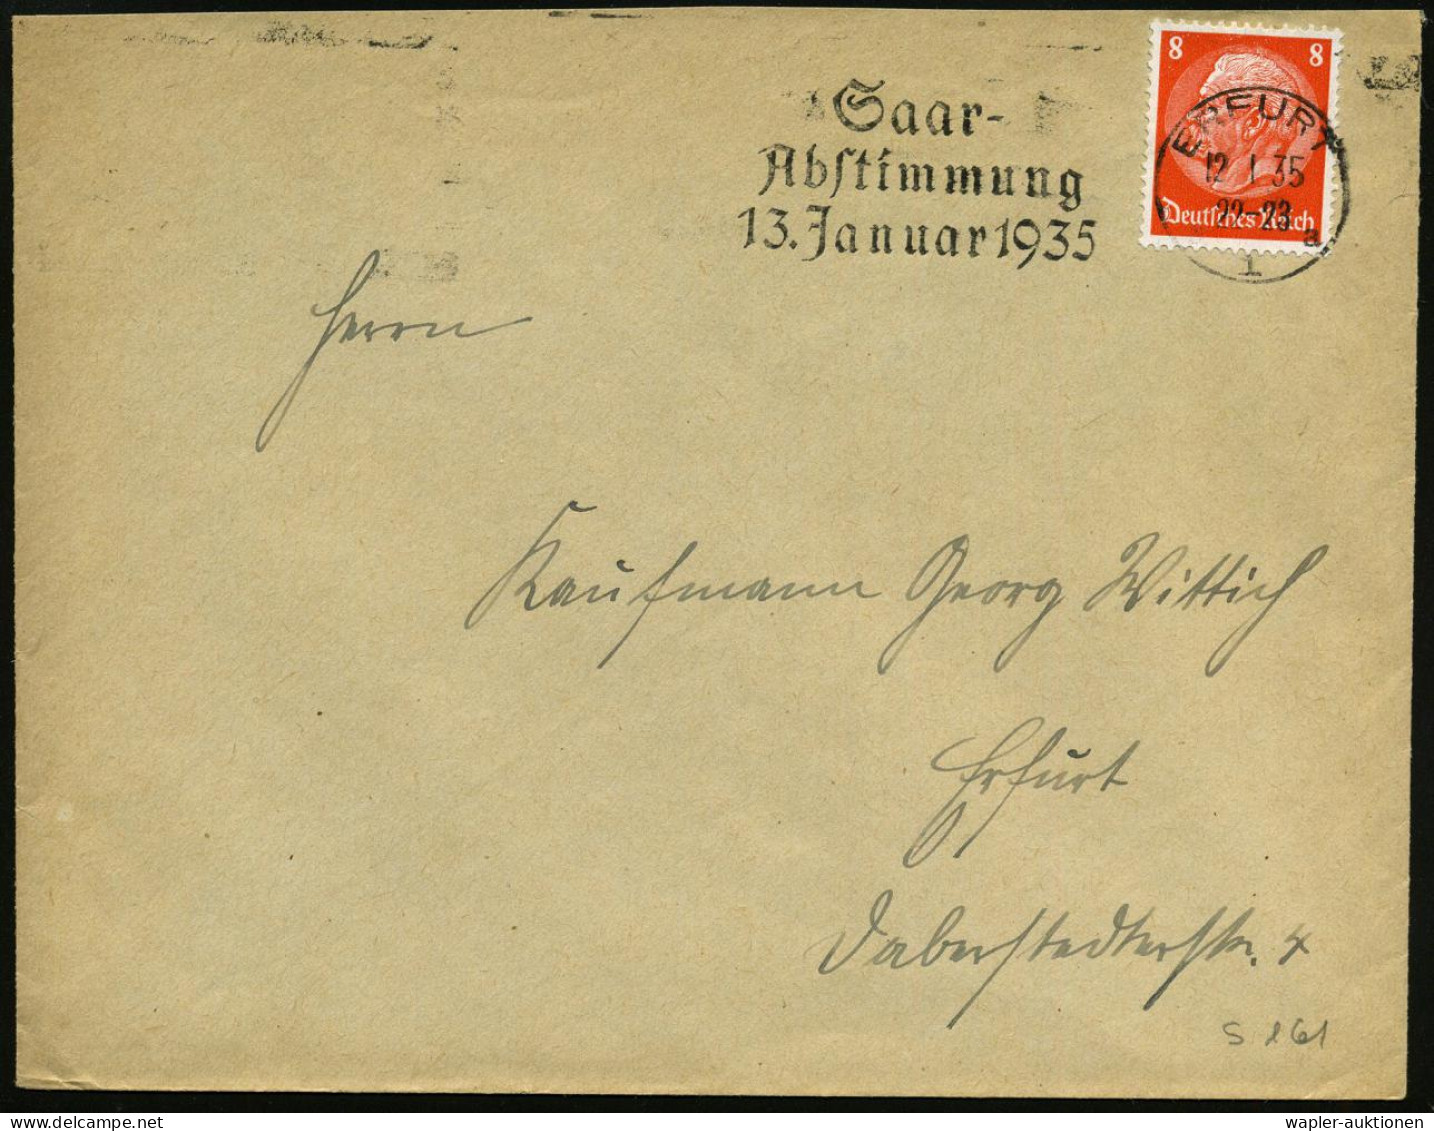 8 8
Saar-
Abstimmung
13. Januar 1935
ERFURT
12.1.35
22-23
a
1
Deutsches Reich
Herrn
Kaufmann Georg Wittich
Erfurt
Daberstedterstr. 4
wapler-auktionen